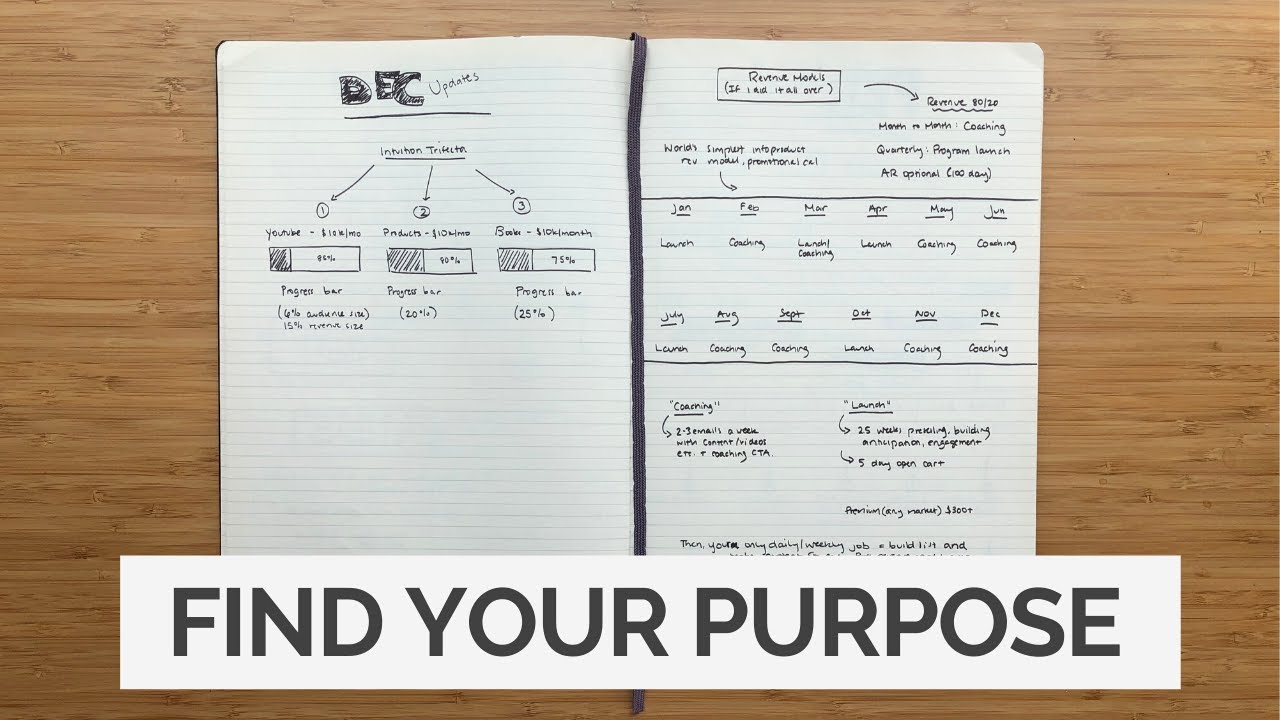 DEC Updates
Intuition Trifecta
1 2 3
Youtube - $10k/mo Products - $10k/mo Books - $10k/month
85% 80% 75%
Progress bar Progress bar Progress bar
(6% audience size) (20%) (25%)
15% revenue size
Revenue Models
(If I did it all over)
Revenue 80/20
Month to Month: Coaching
Quarterly: Program launch
AR optional (100 day)
World's simplest infoproduct
rev model, promotional cal
Jan Feb Mar Apr May Jun
Launch Coaching Launch/ Launch Coaching Coaching
Coaching
July Aug Sept Oct Nov Dec
Launch Coaching Coaching Launch Coaching Coaching
"Coaching"
2-3 emails a week
with content/videos
etc. + coaching CTA.
"Launch"
2.5 weeks preselling, building
anticipation, engagement
5 day open cart
Premium (any market) $300+
Then, you're only daily/weekly job = build list and
FIND YOUR PURPOSE